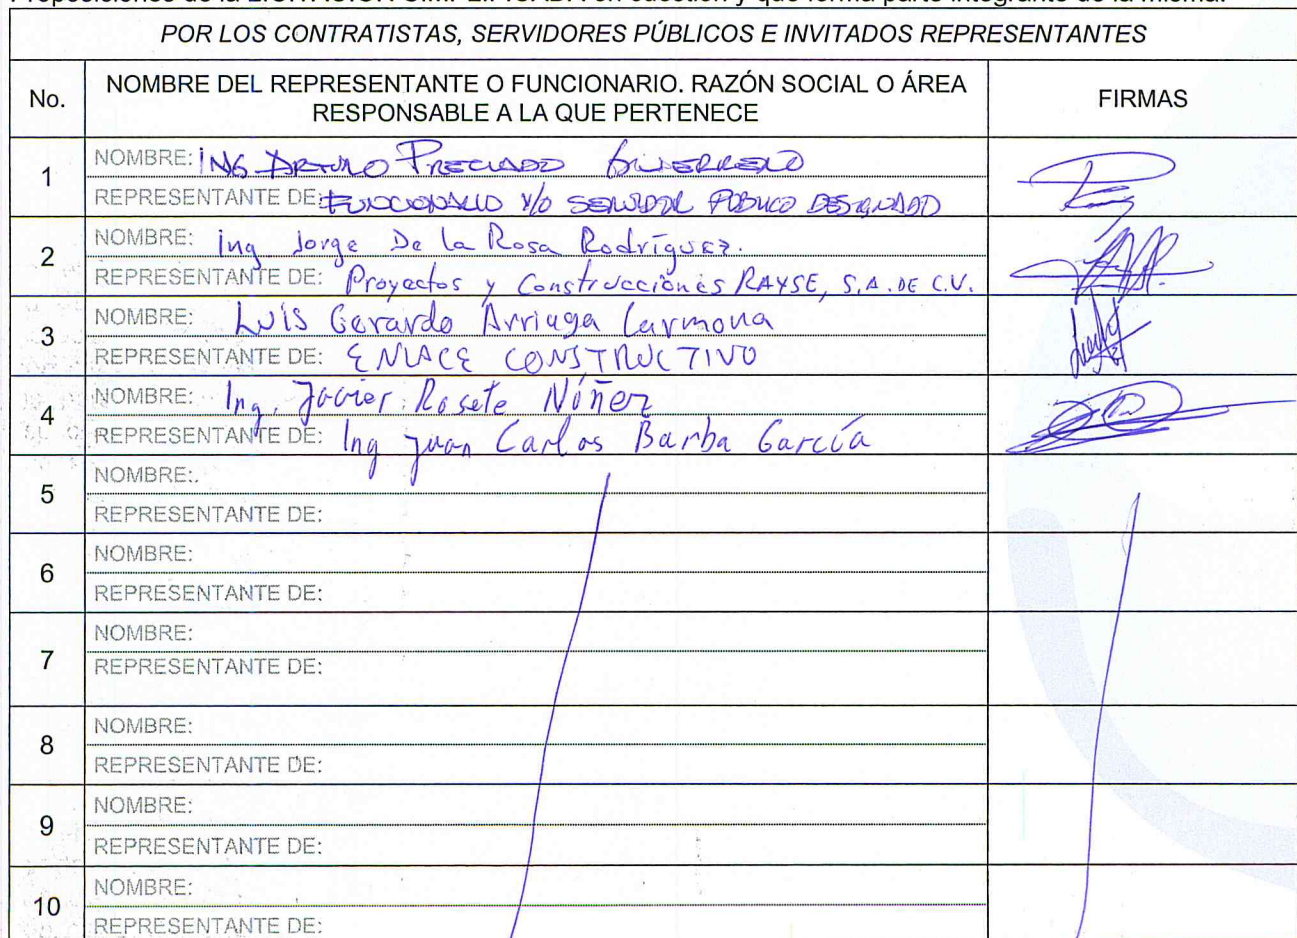 POR LOS CONTRATISTAS, SERVIDORES PÚBLICOS E INVITADOS REPRESENTANTES
No.
NOMBRE DEL REPRESENTANTE O FUNCIONARIO. RAZÓN SOCIAL O ÁREA
RESPONSABLE A LA QUE PERTENECE
FIRMAS
1
NOMBRE: ING ARTURO PRECIADO GUERRERO
REPRESENTANTE DE: FUNCIONARIO Y/O SERVIDOR PÚBLICO DESIGNADO
2
NOMBRE: ing Jorge De la Rosa Rodríguez.
REPRESENTANTE DE: Proyectos y Construcciones RAYSE, S.A. DE C.V.
3
NOMBRE: Luis Gerardo Arriaga Carmona
REPRESENTANTE DE: ENLACE CONSTRUCTIVO
4
NOMBRE: Ing. Javier Rosete Núñez
REPRESENTANTE DE: Ing Juan Carlos Barba García
5
NOMBRE:
REPRESENTANTE DE:
6
NOMBRE:
REPRESENTANTE DE:
7
NOMBRE:
REPRESENTANTE DE:
8
NOMBRE:
REPRESENTANTE DE:
9
NOMBRE:
REPRESENTANTE DE:
10
NOMBRE:
REPRESENTANTE DE: